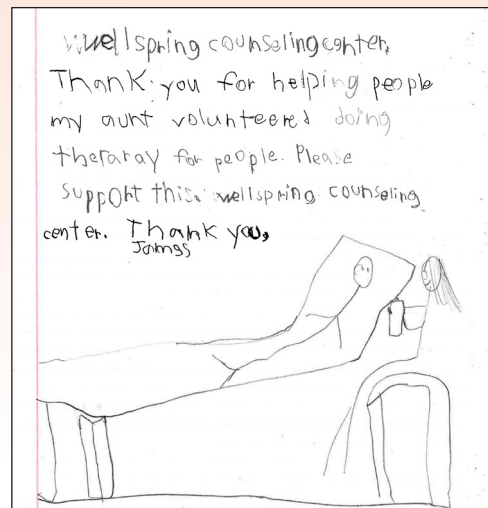 wwellspring counseling conter,
Thank you for helping people
my aunt volunteered doing
theraray for people. Please
support this. wellspring counseling
center. Thank you,
James